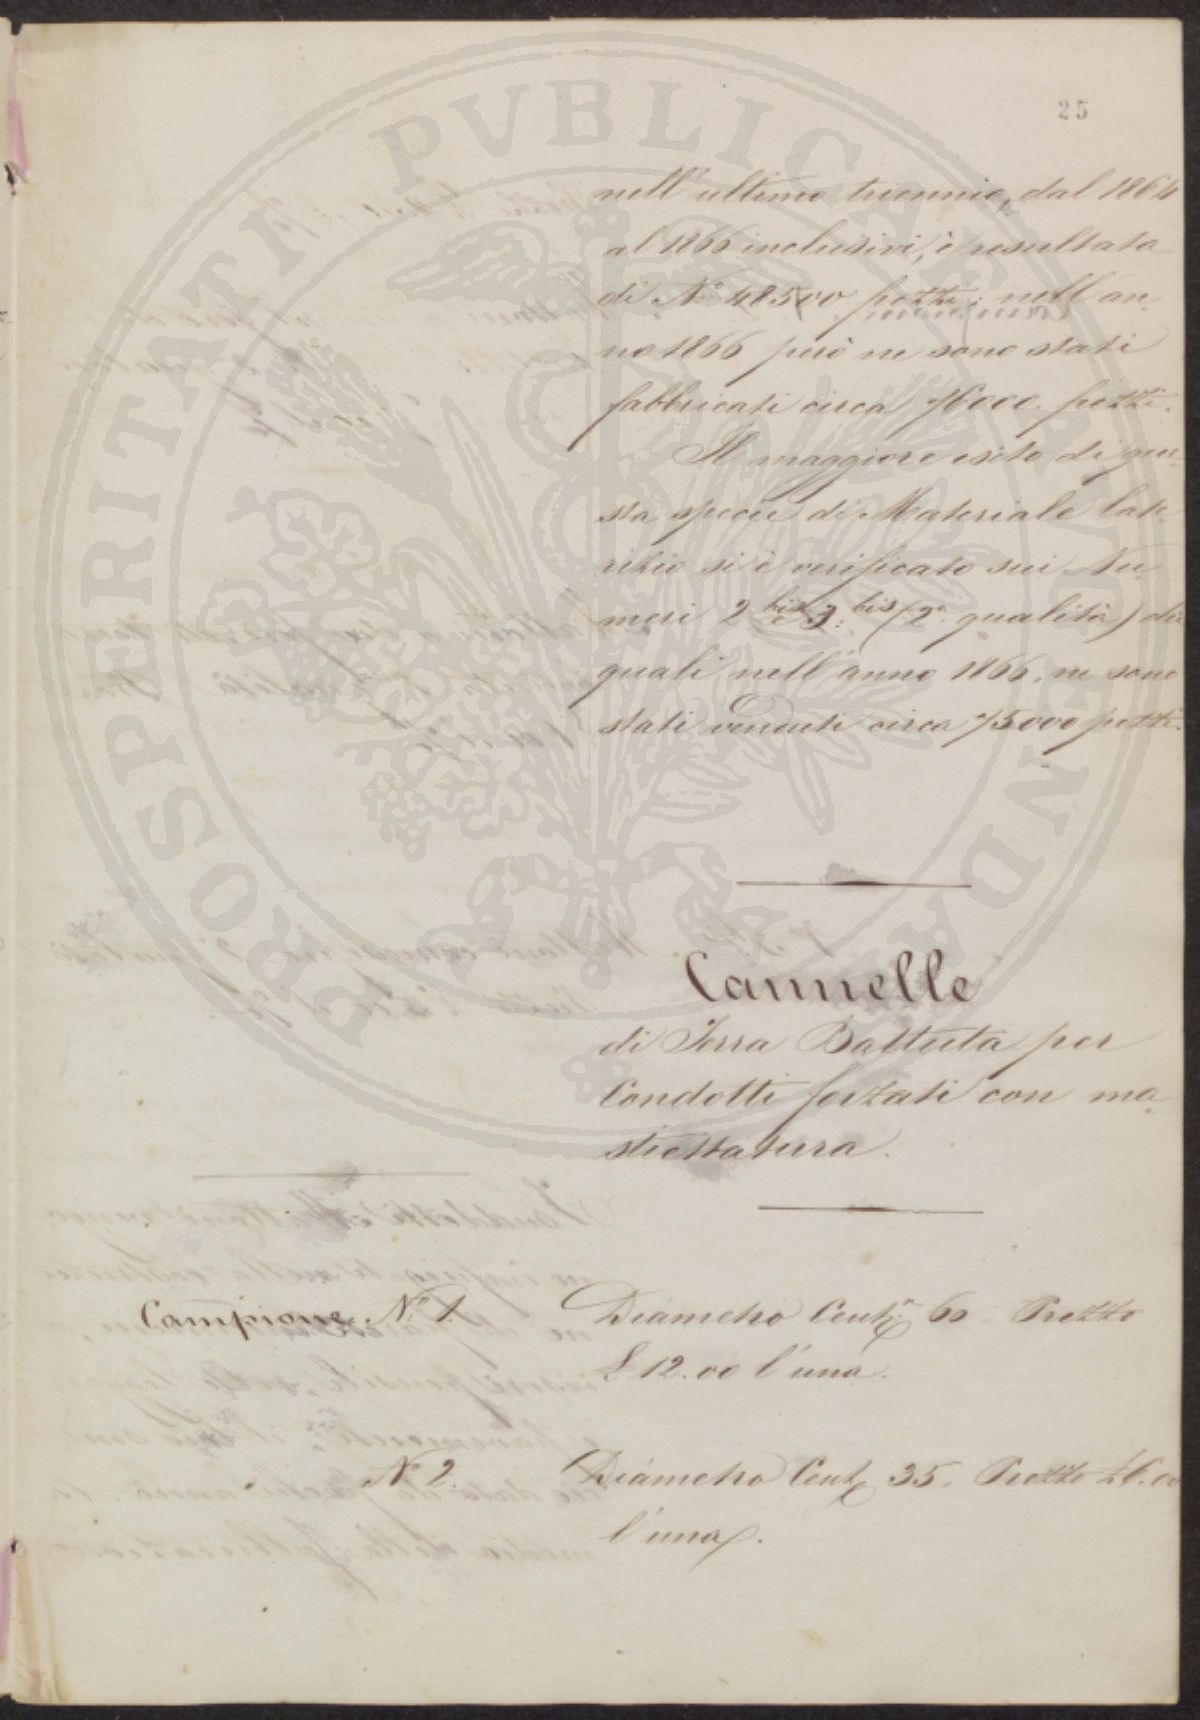 25
nell'ultimo triennio, dal 1864
al 1866 inclusivi, è resultata
di N.° 48500 pezzi; nell'an-
no 1866 però ne sono stati
fabbricati circa 76000. pezzi.
Il maggiore esito di que-
sta specie di Materiale late-
rizio si è verificato sui Nu-
meri 2 bis e 3. bis (2a. qualità) dei
quali nell'anno 1866. ne sono
stati venduti circa 75000 pezzi.
Cannelle
di Terra Battuta per
Condotti forzati con ma-
stiettatura.
Campione N.° 1. Diametro Centi. 60. Prezzo
£ 12.00 l'una.
N.° 2. Diametro Cent. 35. Prezzo £ 6.00
l'una.
PROSPERITATI PVBLICAE AVGENDAE